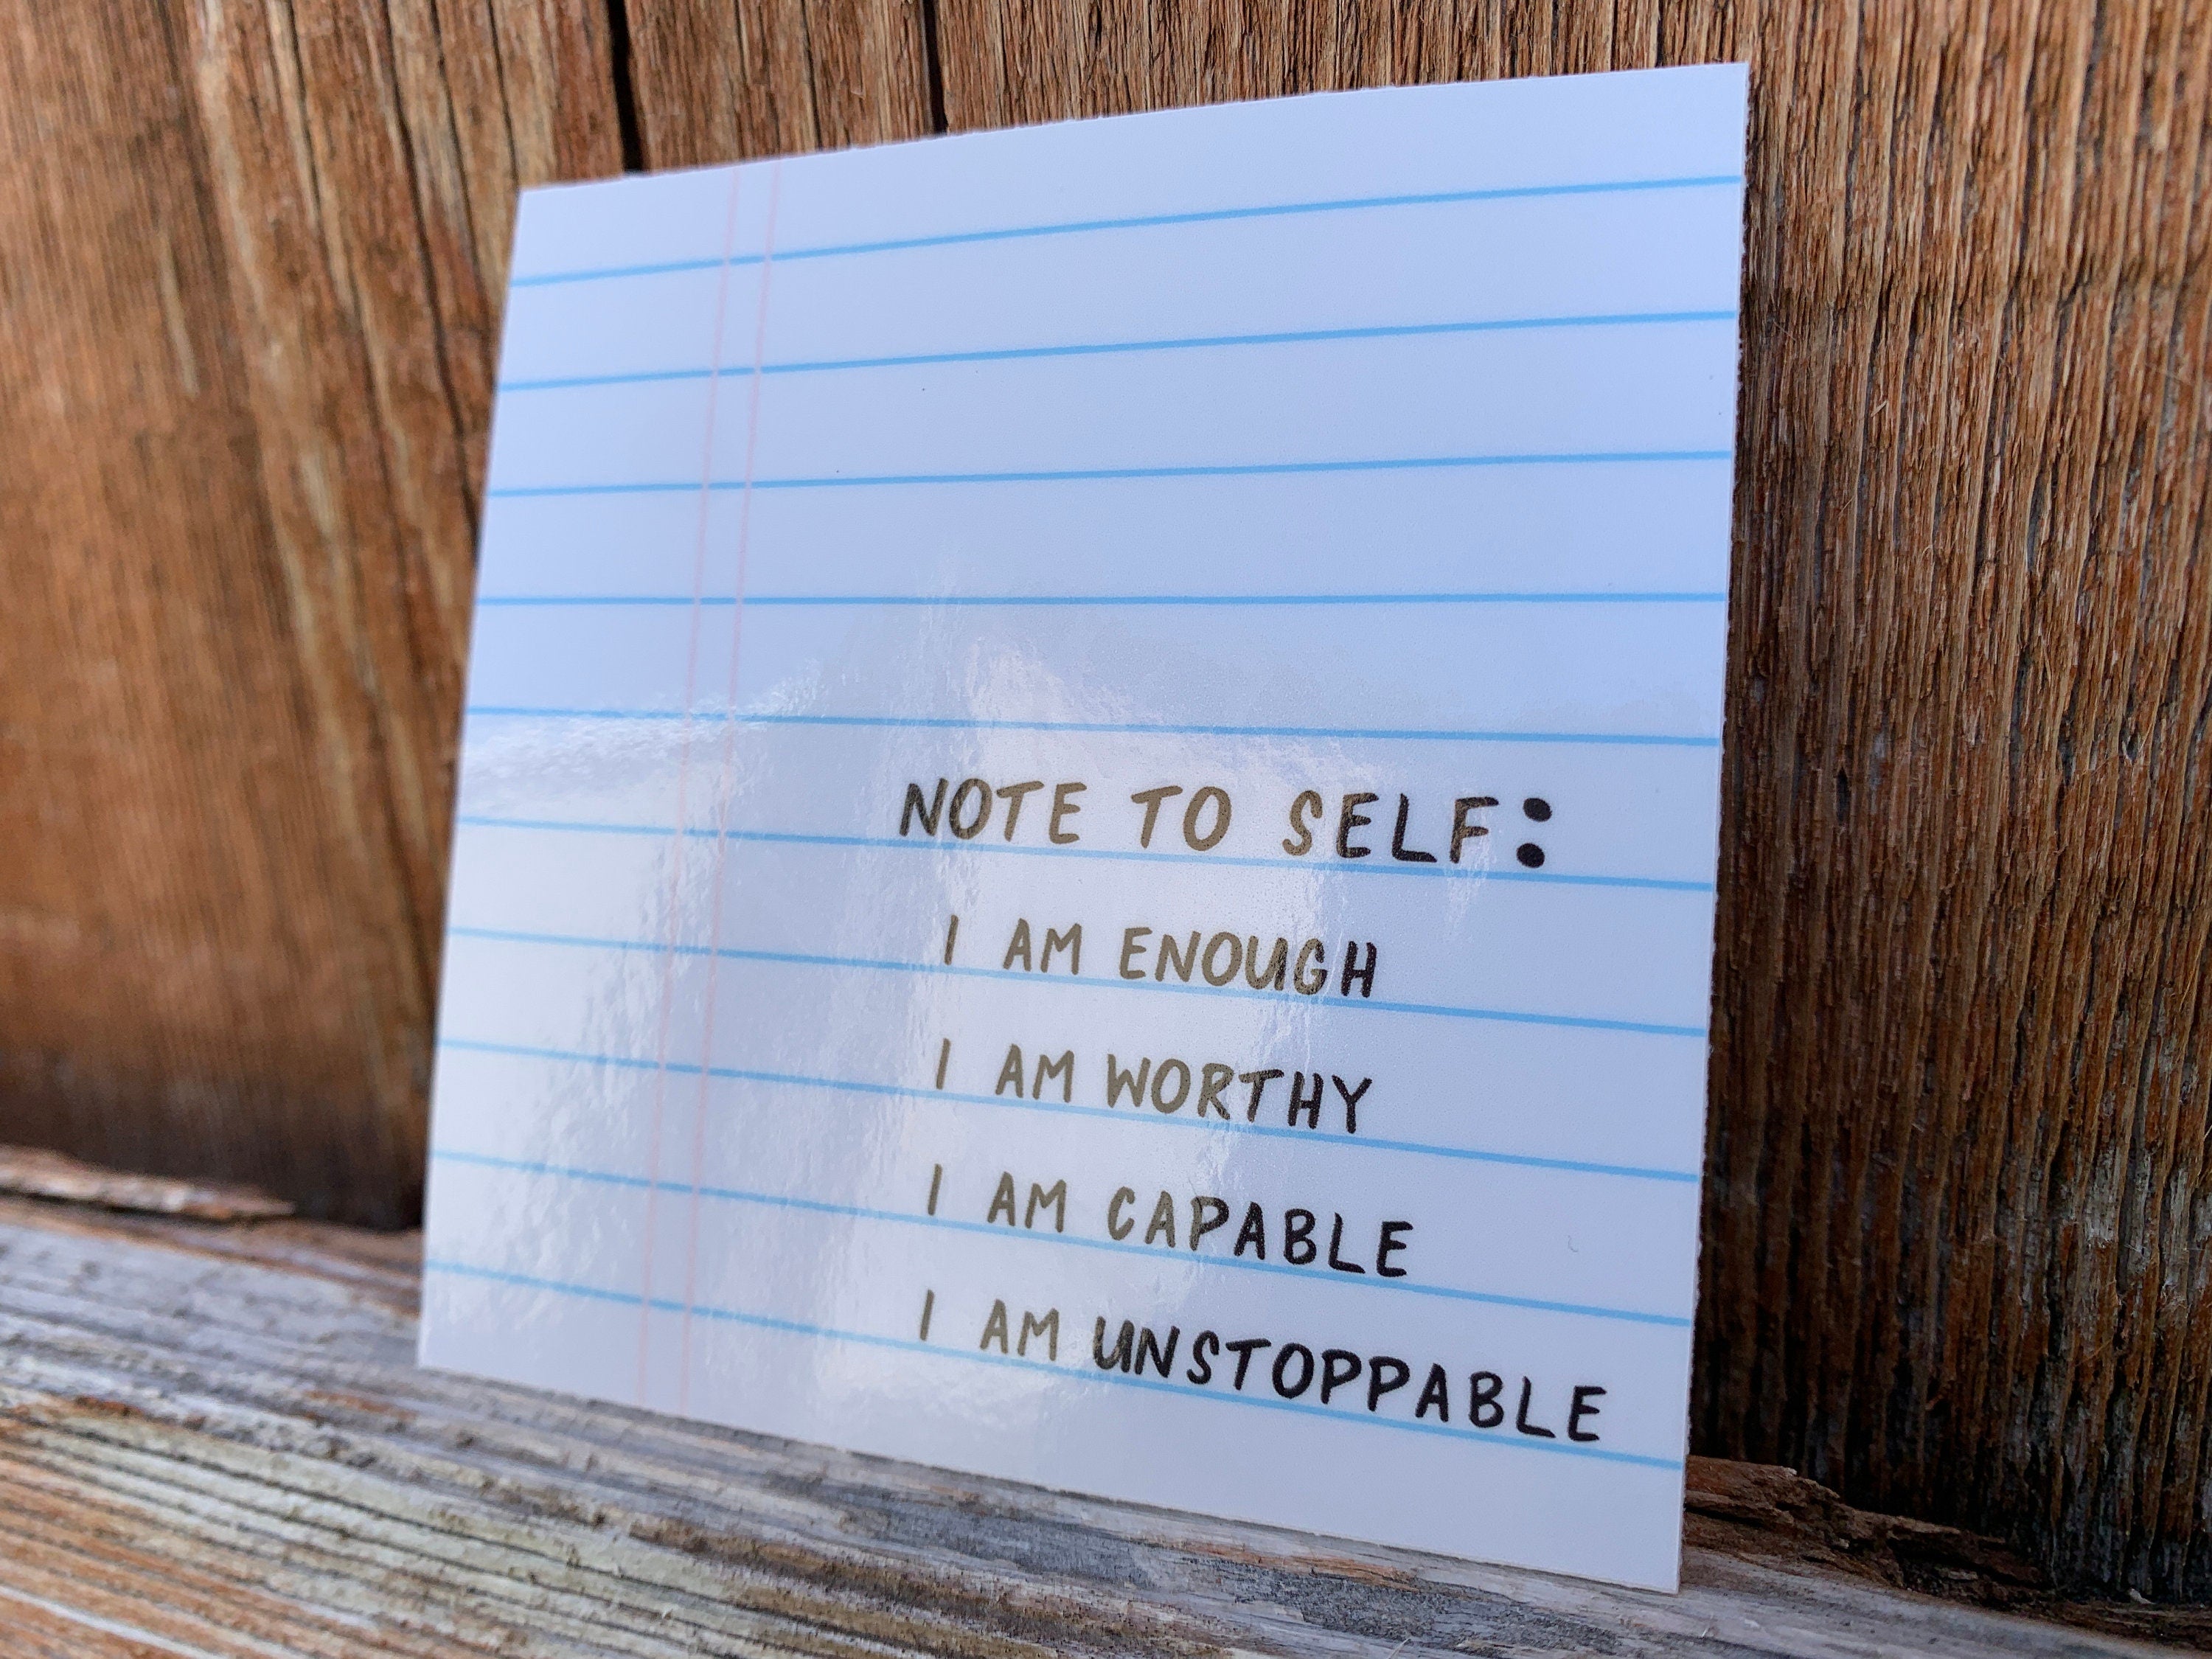 NOTE TO SELF:
I AM ENOUGH
I AM WORTHY
I AM CAPABLE
I AM UNSTOPPABLE